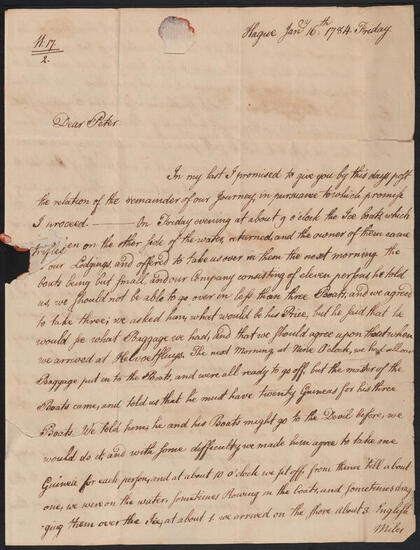 N. 17.
2.
Hague Jany 16th 1784. Friday.
Dear Peter
In my last I promised to give you by this days post
the relation of the remainder of our Journey, in pursuance to which promise
I proceed. — On Friday evening at about 9 o'clock the Ice boats, which
en on the other side of the water, returned, and the owner of them came
our Lodgings and offered to take us over in them the next morning. the
boats being but small, and our Company consisting of eleven persons he told
us, we should not be able to go over in less than three Boats; and we agreed
to take three; we asked him, what would be his Price, but he said that he
would see what Baggage we had, and that we should agree upon that when
we arrived at Helvoetsluys. The next Morning at Nine O'clock, we had all our
Baggage put into the Boats, and were all ready to go off, but the master of the
Boats came, and told us that he must have twenty Guineas for his three
Boats. We told him, he and his Boats might go to the Devil before, we
would do it; and with some difficulty we made him agree to take one
Guinea for each person, and at about 10 o'clock we set off, from thence till about
one, we were on the water, sometimes Rowing in the boats, and sometimes drag-
ging them over the Ice, at about 1. we arrived on the shore about 3 English
Miles